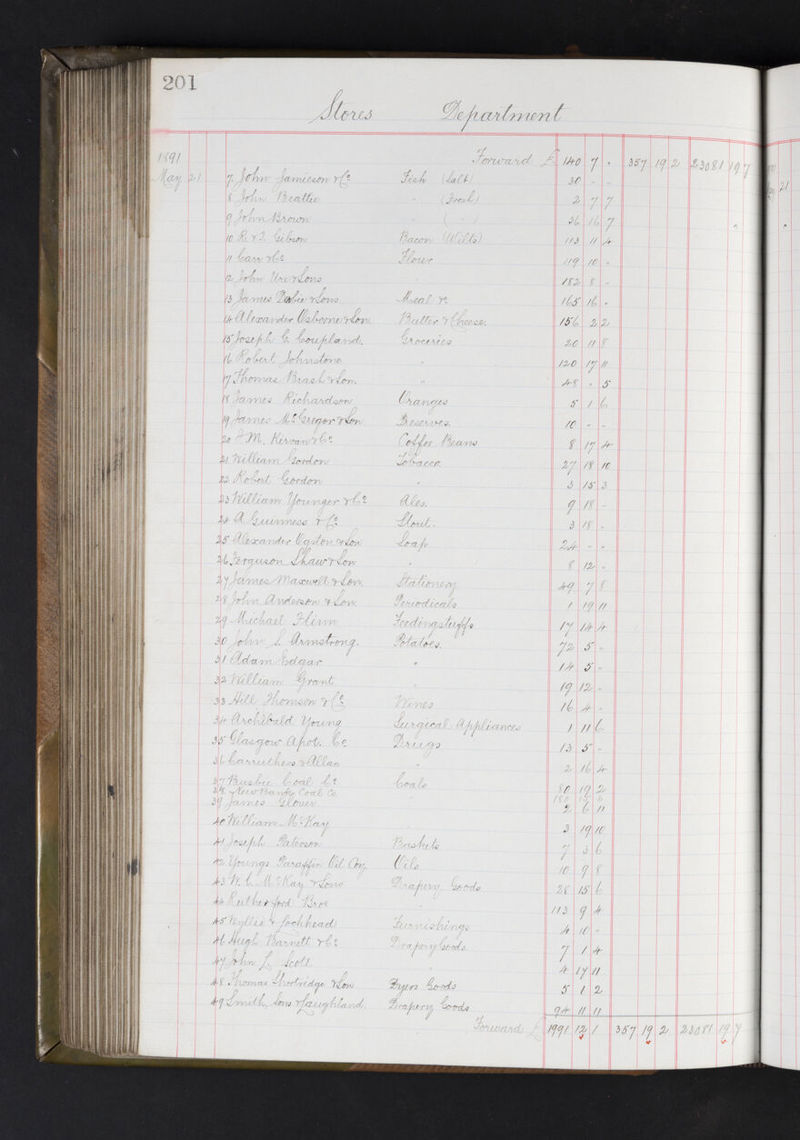 201
Stores Department
1891 Forward £ 140 7 - 357 19 2 23081 19 7
May 21 7 John Jamieson & Co Fish (Salt) 30 - -
8 John Beattie " (Fresh) 2 7 7
9 John Brown " ( " ) 26 16 7
10 R. & J. Gibson Bacon (Wilts) 113 11 4
11 Carr & Co Flour 119 10 -
12 John Ure & Sons 182 8 -
13 James & Sons Meal &c 165 16 -
14 Alexander Osborne & Son Butter & Cheese 156 2 2
15 Joseph G. Coupland. Groceries 20 11 8
16 Robert Johnstone " 120 17 11
17 Thomas Brash & Son. " 48 - 5
18 James Richardson Oranges 5 1 6
19 James McGregor & Son Preserves. 10 - -
20 M. Kirvan & Co Coffee Beans 8 17 4
21 William Gordon Tobacco 27 18 10
22 Robert Gordon " 3 15 3
23 William Younger & Co Ales. 9 18 -
24 A Guinness & Co Stout. 3 18 -
25 Alexander Ogston & Son Soap 24 - -
26 Ferguson Shaw & Son " 8 12 -
27 James Maxwell & Son. Stationery 49 7 8
28 John Anderson & Son Periodicals 1 19 11
29 Michael Flinn Feedingstuffs 17 14 4
30 John L. Armstrong. Potatoes. 72 5 -
31 Adam Edgar " 14 5 -
32 William Grant 19 12 -
33 Hill Thomson & Co Wines 16 4 -
34 Archibald Young Surgical Appliances 1 11 6
35 Glasgow Apot. Co Drugs 13 5 -
36 Carruthers & Allan " 2 16 4
37 Coal Co Coals 80 19 2
38 New Bank Coal Co 180
39 James Glover " 2 6 11
40 William McKay 3 19 10
41 Joseph Paterson Baskets 7 3 6
42 Youngs Paraffin Oil Coy Oils 10 9 8
43 W. C. McKay & Sons Drapery Goods 28 15 6
44 Rutherford Bros " 113 9 4
45 Wyllie & Lochhead Furnishings 4 10 -
46 Hugh Barnett & Co Drapery Goods 7 1 4
47 John J. Scott " 4 17 11
48 Thomas Shortridge & Son Dyers Goods 5 1 2
49 Smith, Sons & Laughland. Drapery Goods 94 11 11
Forward £ 1991 12 1 357 19 2 23081 19 7
21